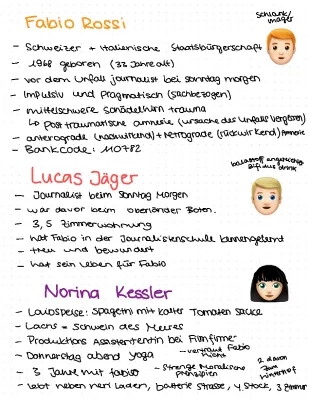 Fabio Rossi
schlank/
mager
- Schweizer + Italienische Staatsbürgerschaft
- 1968 geboren (33 Jahre alt)
- vor dem Unfall Journalist bei Sonntag morgen
- Impulsiv und Pragmatisch (sachbezogen)
- mittelschwere Schädelhirn trauma
↳ posttraumatische amnesie (ursache des Unfalls vergessen)
- anterograde (nachwirkend) + Retrograde (rückwirkend) Amnesie
- Bankcode: 110782
Lucas Jäger
- Journalist beim Sonntag Morgen
- war davor beim Oberländer Boten.
- 3,5 Zimmerwohnung
- hat Fabio in der Journalistenschule kennengelernt
- treu und bewundert
- hat sein Leben für Fabio
Norina Kessler
- Lablospeise: Spagetti mit kalter Tomaten sauce
- Lachs = Schwein des Meeres
- Produktions Assistententin bei Filmfirma
- vertraut Fabio
nicht
- Donnerstag abend Yoga
- Strenge Moralische
Prinzipien
2 davon
zum
- 3 Jahre mit Fabio
- lebt neben nem Laden, strasse, 4 Stock, 3 Zimmer